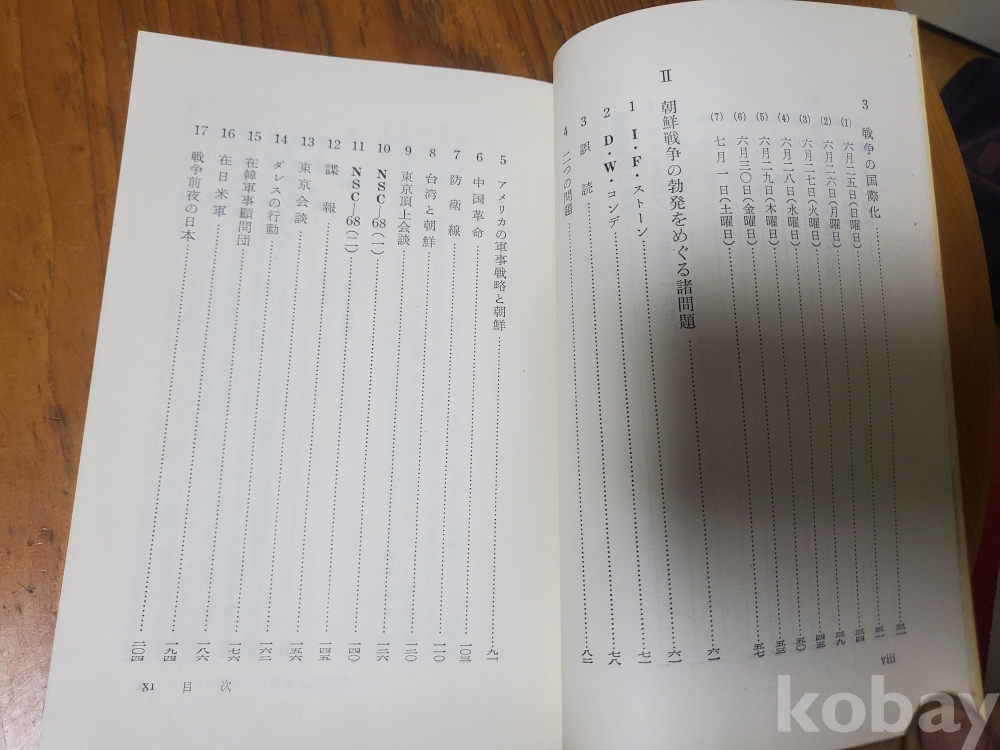 3 戦争の国際化……三一
(1) 六月二五日(日曜日)……三一
(2) 六月二六日(月曜日)……三四
(3) 六月二七日(火曜日)……三九
(4) 六月二八日(水曜日)……四五
(5) 六月二九日(木曜日)……五〇
(6) 六月三〇日(金曜日)……五七
(7) 七月一日(土曜日)……六一
II 朝鮮戦争の勃発をめぐる諸問題……六一
1 I・F・ストーン……七一
2 D・W・コンデ……七八
3 誤読……八二
4 二つの問題
viii
5 アメリカの軍事戦略と朝鮮……九一
6 中国革命……一〇三
7 防衛線……一一〇
8 台湾と朝鮮……一二〇
9 東京頂上会談……一二六
10 NSC—68(一)……一四〇
11 NSC—68(二)……一四五
12 諜報……一五六
13 東京会談……一六二
14 ダレスの行動……一七六
15 在韓軍事顧問団……一八六
16 在日米軍……一九四
17 戦争前夜の日本……二〇四
目次
kobay